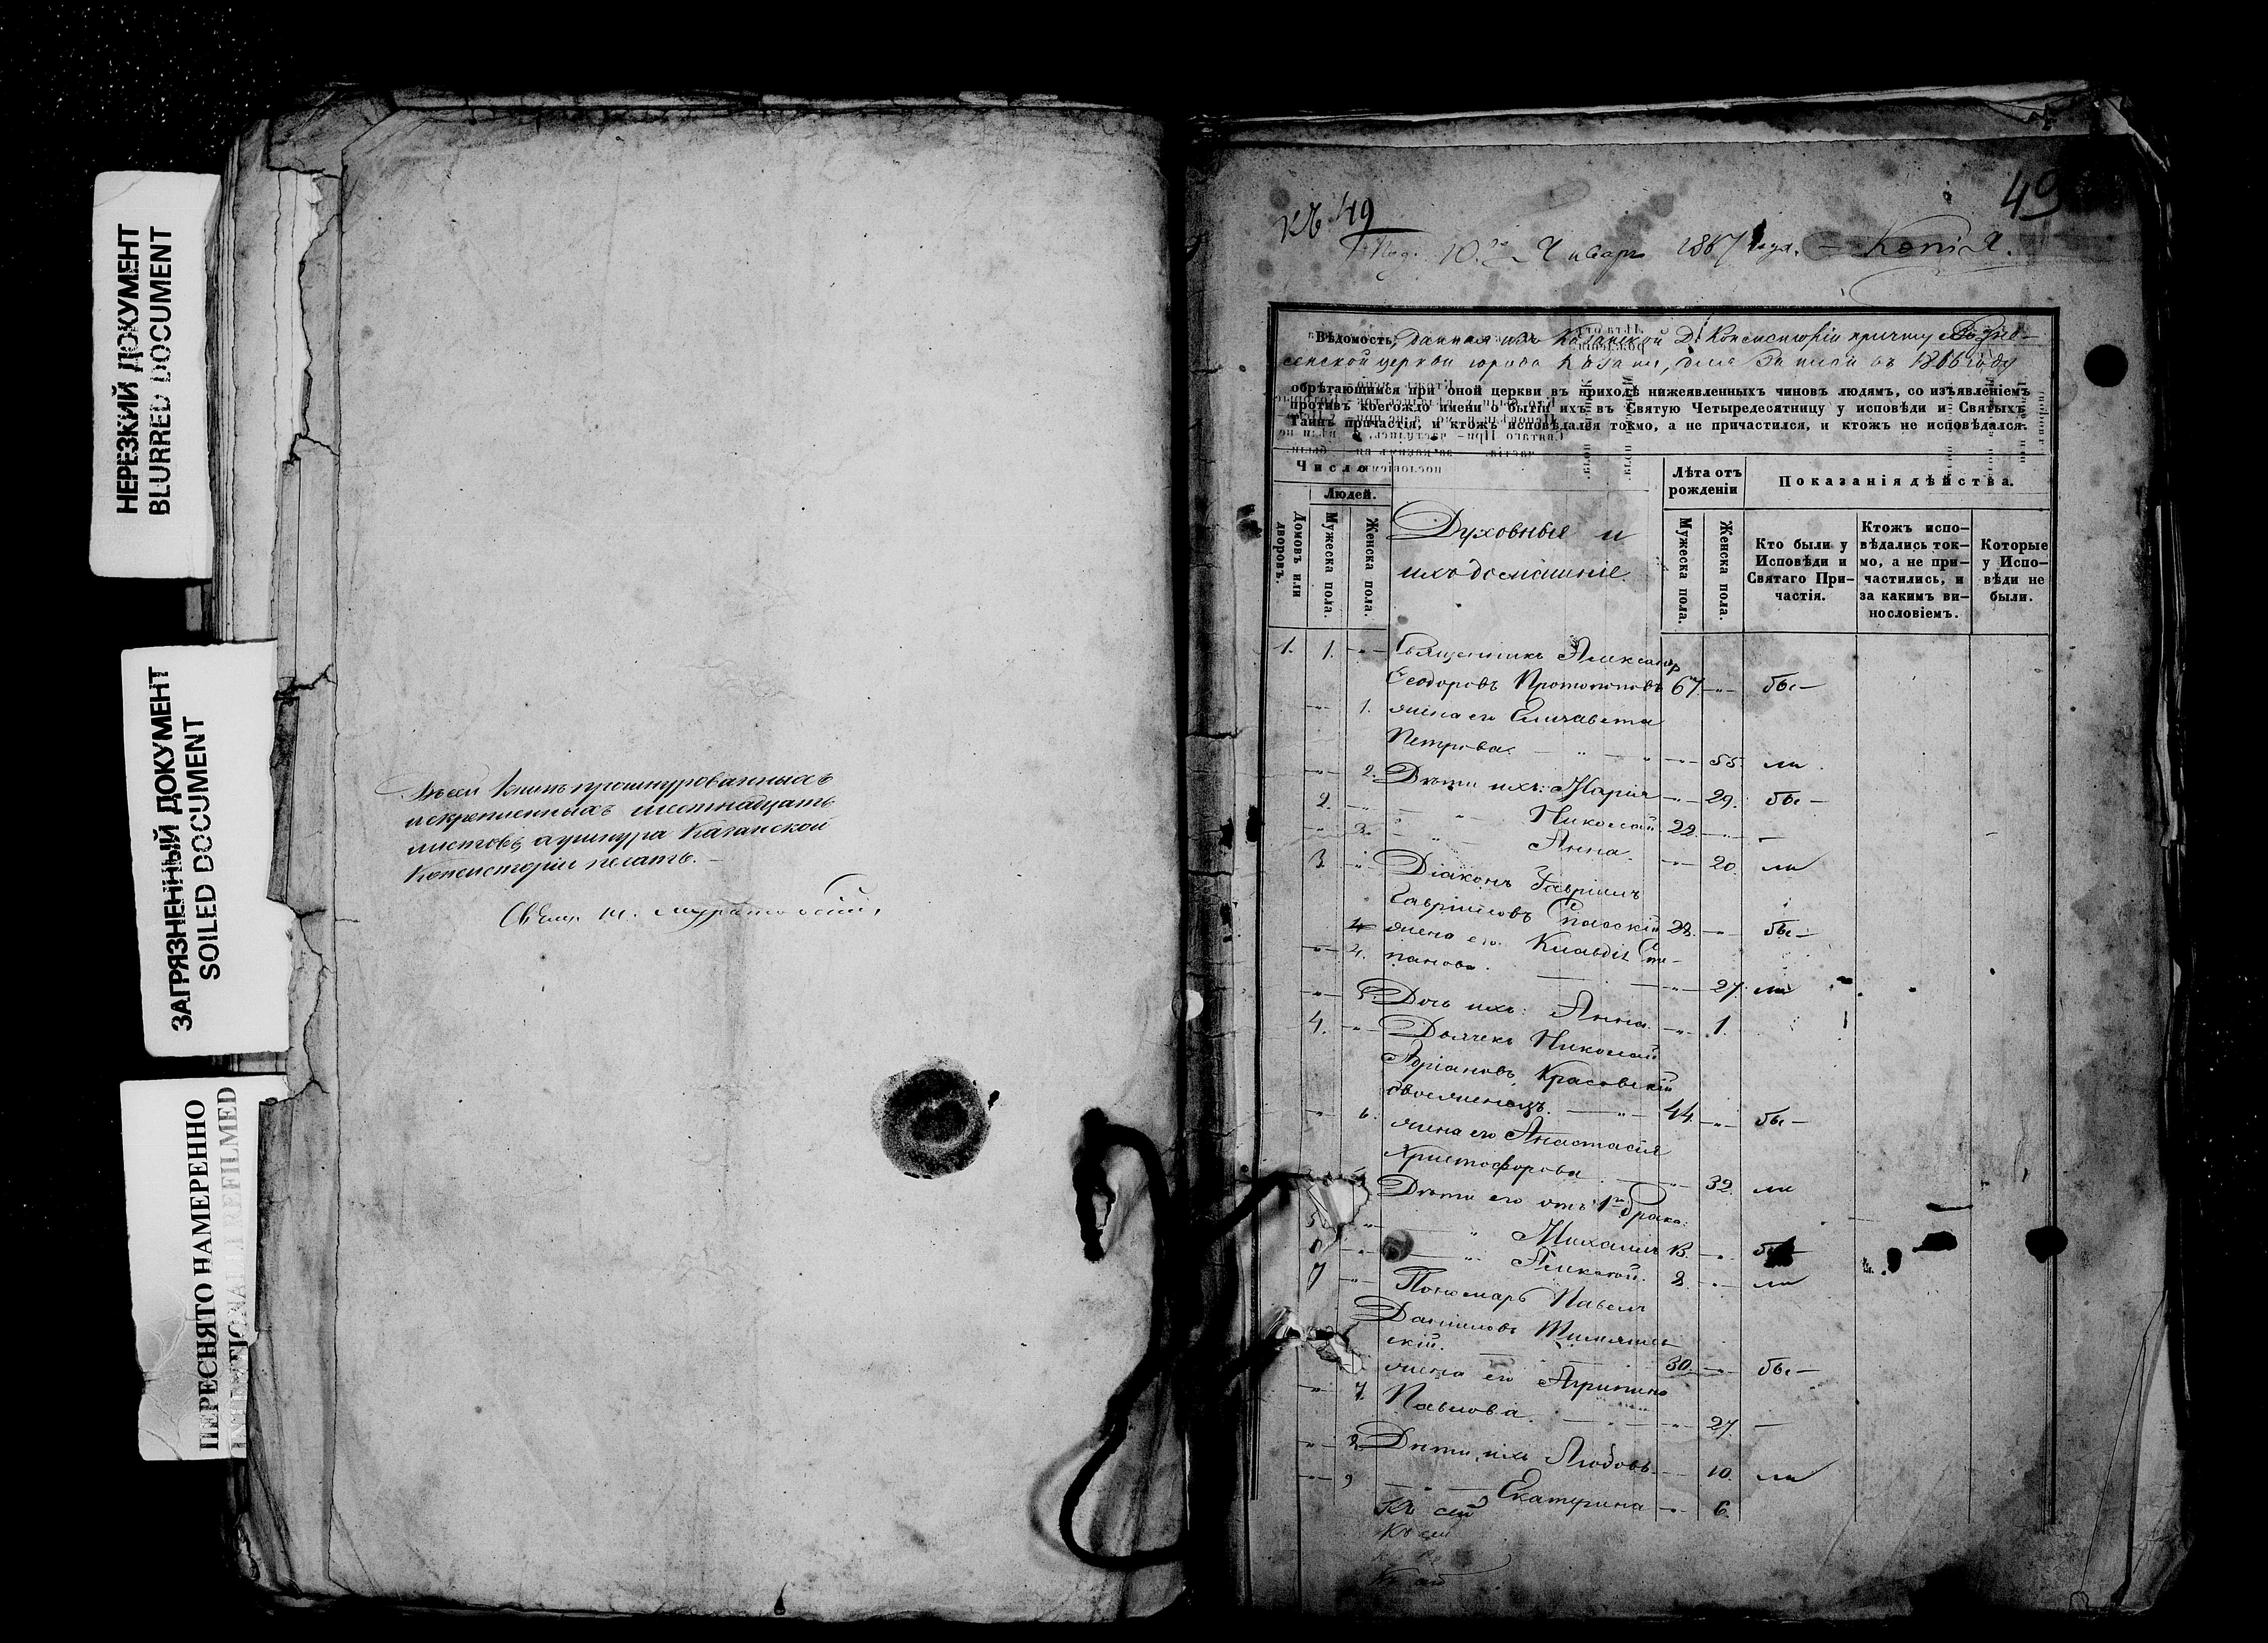 НЕРЕЗКИЙ ДОКУМЕНТ
BLURRED DOCUMENT
ЗАГРЯЗНЕННЫЙ ДОКУМЕНТ
SOILED DOCUMENT
ПЕРЕСНЯТО НАМЕРЕННО
INTENTIONALLY REFILMED
Въ сей книгѣ прошнурованныхъ
и скрепленныхъ шестнадцать
листовъ, а у шнура Казанской
Консисторіи печать.
49
къ 49
10го Январ 1867 года. — Копія.
Вѣдомость, данная изъ Казанской Д. Консисторіи причту Возне-
сенской церкви города Казани, для записи въ 1866 году
обрѣтающимся при оной церкви въ приходѣ нижеявленныхъ чиновъ людямъ, со изъявленіемъ
противъ коегождо имени о бытіи ихъ въ Святую Четыредесятницу у исповѣди и Святыхъ
Таинъ причастія, и ктожъ исповѣдался токмо, а не причастился, и ктожъ не исповѣдался.
Число
Людей.
Домовъ или дворовъ.
Мужеска пола.
Женска пола.
Духовные и
ихъ домашніе.
Лѣта отъ рожденіи
Мужеска пола.
Женска пола.
Показанія дѣйства.
Кто были у Исповѣди и Святаго При-частія.
Ктожъ испо-вѣдались ток-мо, а не при-частились, и за какимъ ви-нословіемъ.
Которые у Испо-вѣди не были.
1. 1. -"- Священникъ Александр
Ѳеодоровъ Протопоповъ 67 -"- бы —
-"- 1. жена его Елизавета
Петрова. -"- 55. ли
-"- 2. Дѣти ихъ: Марія -"- 29. бы —
2. -"- Николай 22. -"- —
-"- 3. Анна. -"- 20. ли
3. -"- Діаконъ Гавріилъ
Гавріиловъ Спасскій 28. -"- бы —
4 жена его Клавдія Сте-
-"- 4. панова. -"- 27. ли
-"- 5. Дочь ихъ: Анна. -"- 1.
4. -"- Дьячекъ Николай
Адріановъ Красовскій
двоеженецъ. 44. -"- бы —
-"- 6. жена его Анастасія
Христофорова -"- 32. ли
Дѣти его отъ 1го брака:
5. -"- Михаилъ 13. -"- бы —
-"- Алексѣй. 8. -"- ли
7 -"- Пономарь Павелъ
Даниловъ
скій. 30. -"- бы —
жена его Агрипина
-"- 7. Павлова. -"- 27. —
-"- 8. Дѣти ихъ Любовь -"- 10. ли
-"- 9 Екатерина -"- 6.
Къ сей
Къ сей